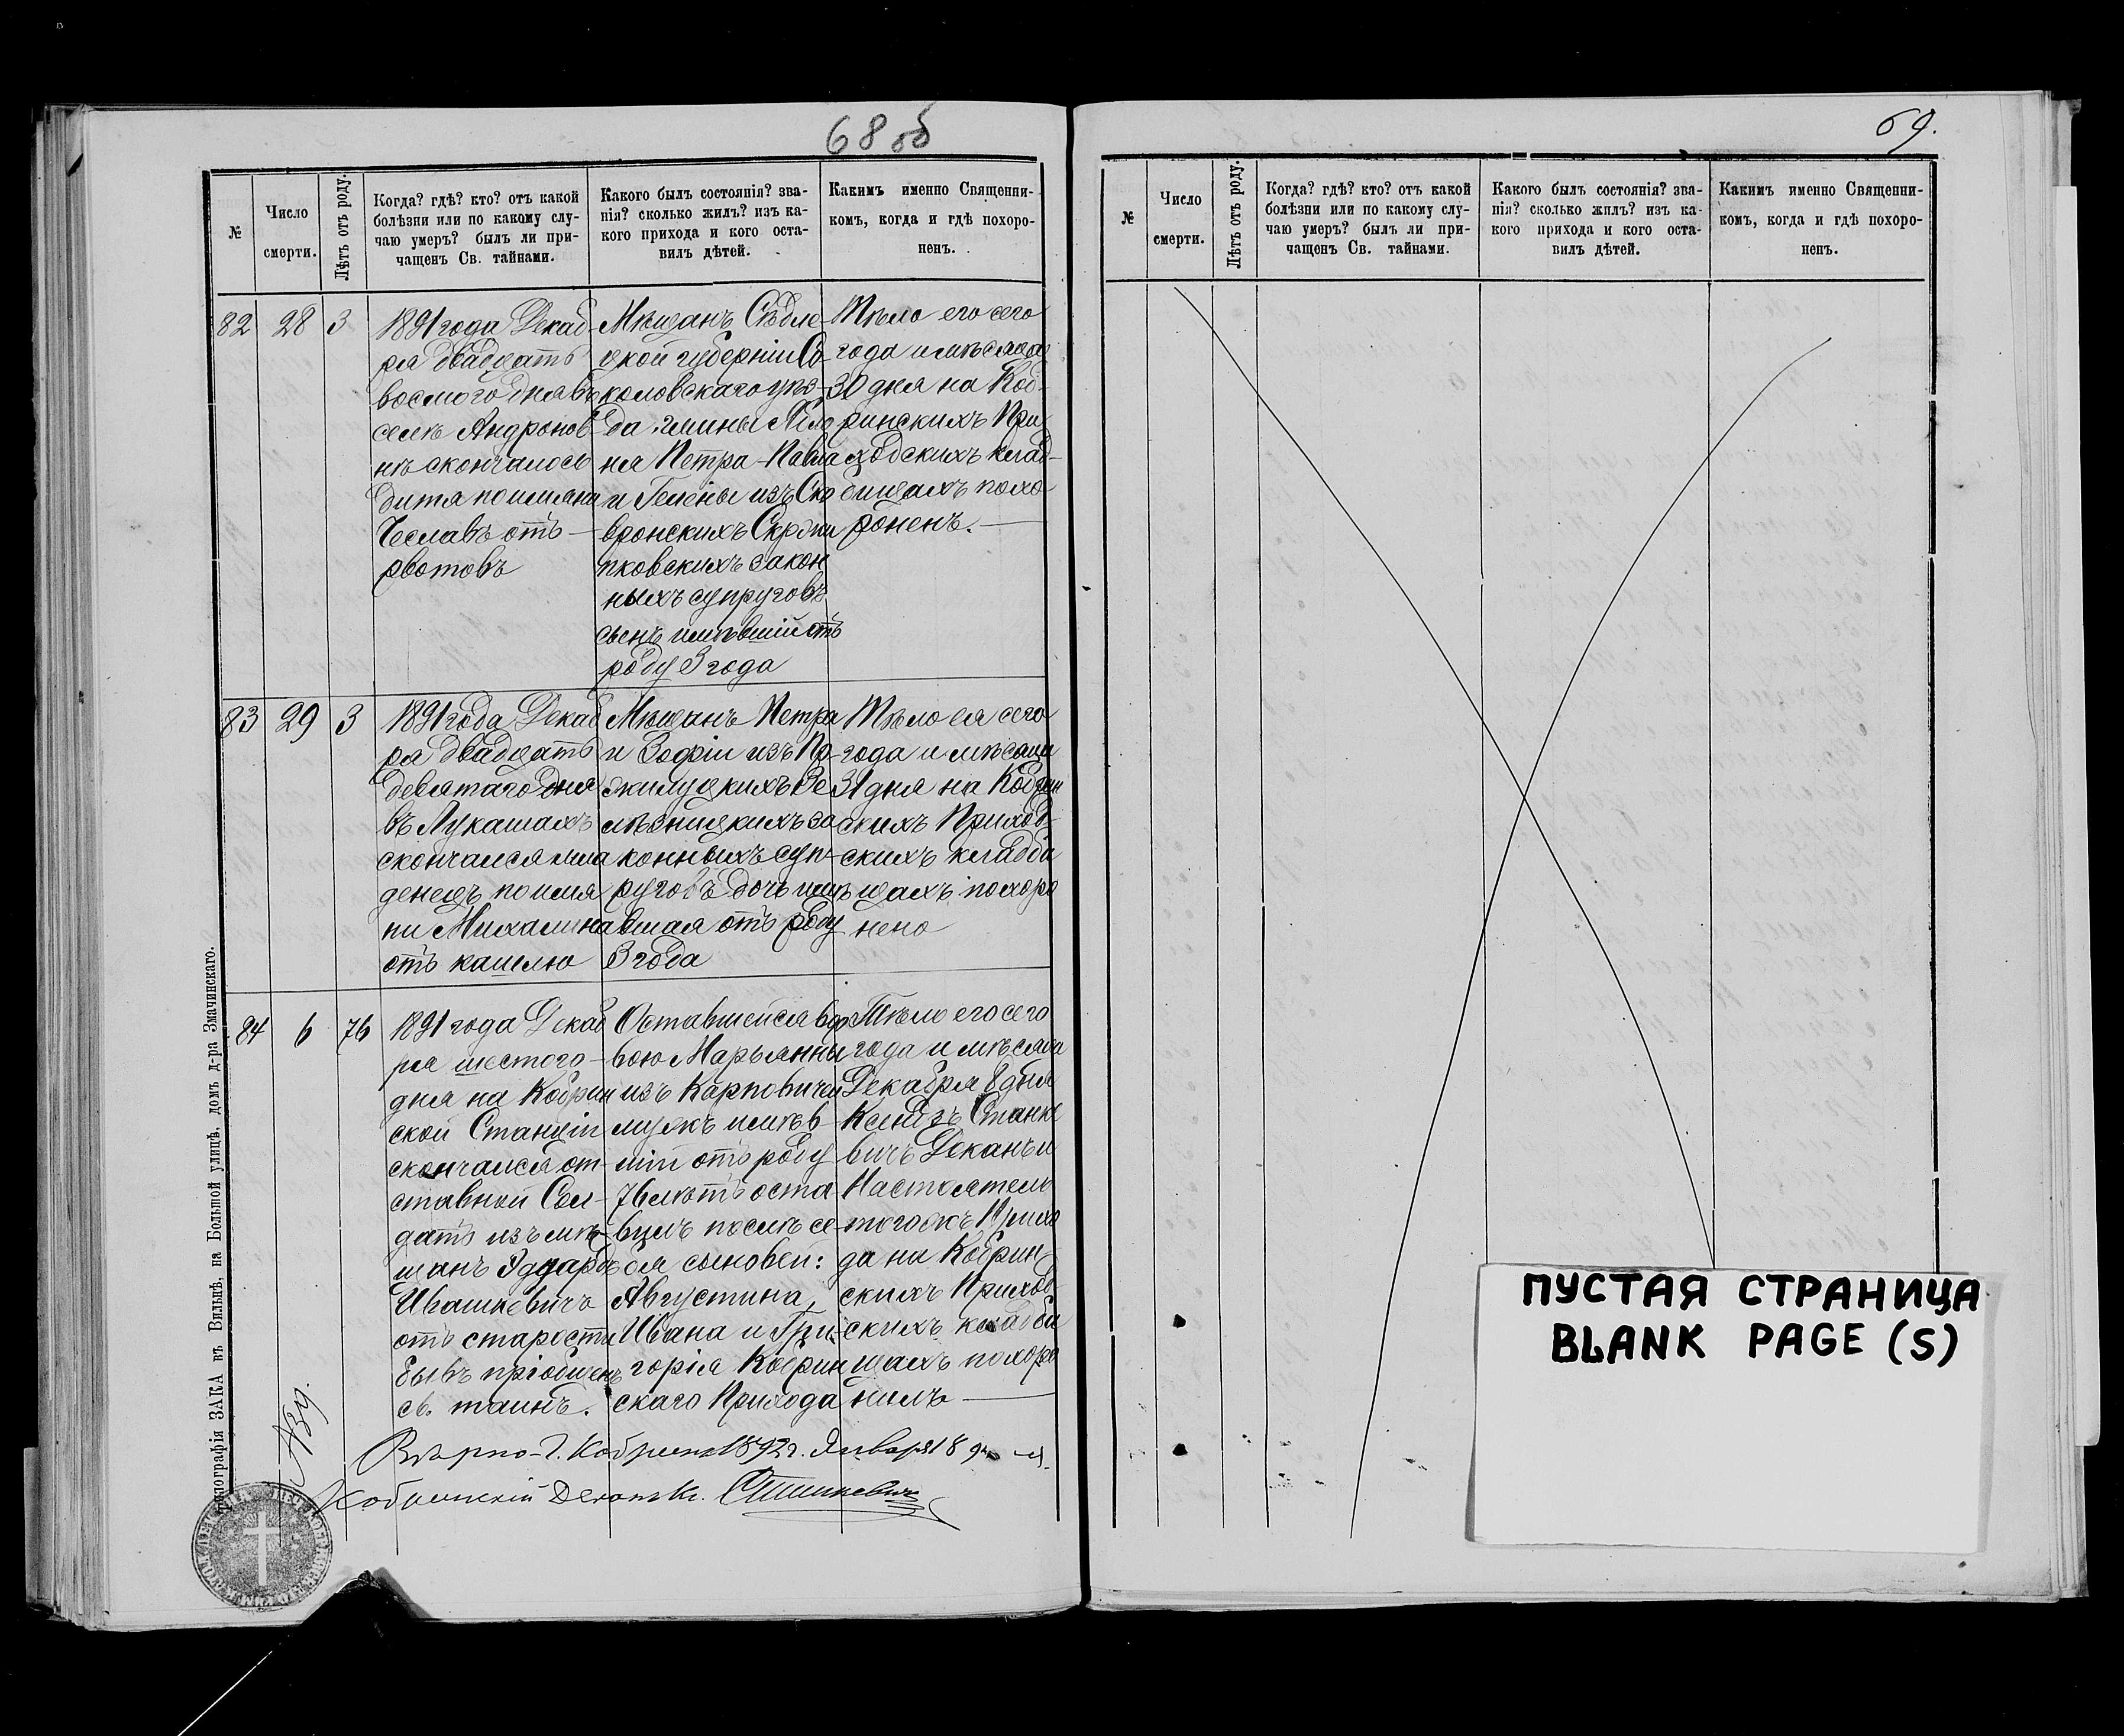 68 об
№
Число
смерти.
Лѣтъ отъ роду.
Когда? гдѣ? кто? отъ какой
болѣзни или по какому слу-
чаю умеръ? былъ ли при-
чащенъ Св. тайнами.
Какого былъ состоянія? зва-
нія? сколько жилъ? изъ ка-
кого прихода и кого оста-
вилъ дѣтей.
Какимъ именно Священни-
комъ, когда и гдѣ похоро-
ненъ.
82
28
3
1891 года Декаб-
ря двадцать
восмого дня въ
селѣ Андронов-
нѣ скончалось
дитя по имяни
Чеславъ отъ
рвотовъ
Мѣщанъ Сѣдле-
цкой губерніи Со-
коловскаго уѣз-
да гмины
ня Петра-Павла
и Гелены изъ Ско
вронскихъ
пковскихъ закон
ныхъ супруговъ
сынъ имѣвшій отъ
роду 3 года
Тѣло его сего
года и мѣсяца
30 дня на Коб-
ринскихъ При
ходскихъ клад-
бищахъ похо-
роненъ.
83
29
3
1891 года Декаб
ря двадцать
девятаго дня
въ Лукашахъ
скончался мла
денецъ по имя
ни Михалина
отъ кашлю
Мѣщанъ Петра
и Зофіи изъ
за
конныхъ суп-
руговъ дочь имѣ
вшая отъ роду
3 года
Тѣло ея сего
года и мѣсяца
31 дня на Кобрин
скихъ Приход-
скихъ кладби
щахъ похоро
нено
84
6
76
1891 года Декаб
ря шестого
дня на Кобрин
ской Станціи
скончался от-
ставной Сол-
датъ изъ мѣ-
щанъ Эдуардъ
Ивашкевичъ
отъ старости
бывъ пріобщенъ
св. таинъ.
Оставшейся вдо
вою Марьянны
изъ Карповичей
мужъ имѣв-
шій отъ роду
76 лѣтъ оста
вилъ послѣ се-
бя сыновей:
Августина,
Ивана и Гри-
горія Кобрин
скаго Прихода
Тѣло его сего
года и мѣсяца
Декабря 8 дня
Ксендзъ Станке
вичъ Деканъ и
Настоятель
тогожъ Прихо
да на Кобрин-
скихъ Приход-
скихъ кладби
щахъ похоро
нилъ
Вѣрно г. Кобринъ 1892 г. Января 8 дня
Кобринскій Деканъ Кс. Станкевичъ
№ 39.
Типографія ЗАКА въ Вильнѣ, на Большой улицѣ, домъ д-ра Змачинскаго.
69.
№
Число
смерти.
Лѣтъ отъ роду.
Когда? гдѣ? кто? отъ какой
болѣзни или по какому слу-
чаю умеръ? былъ ли при-
чащенъ Св. тайнами.
Какого былъ состоянія? зва-
нія? сколько жилъ? изъ ка-
кого прихода и кого оста-
вилъ дѣтей.
Какимъ именно Священни-
комъ, когда и гдѣ похоро-
ненъ.
ПУСТАЯ СТРАНИЦА
BLANK PAGE (S)